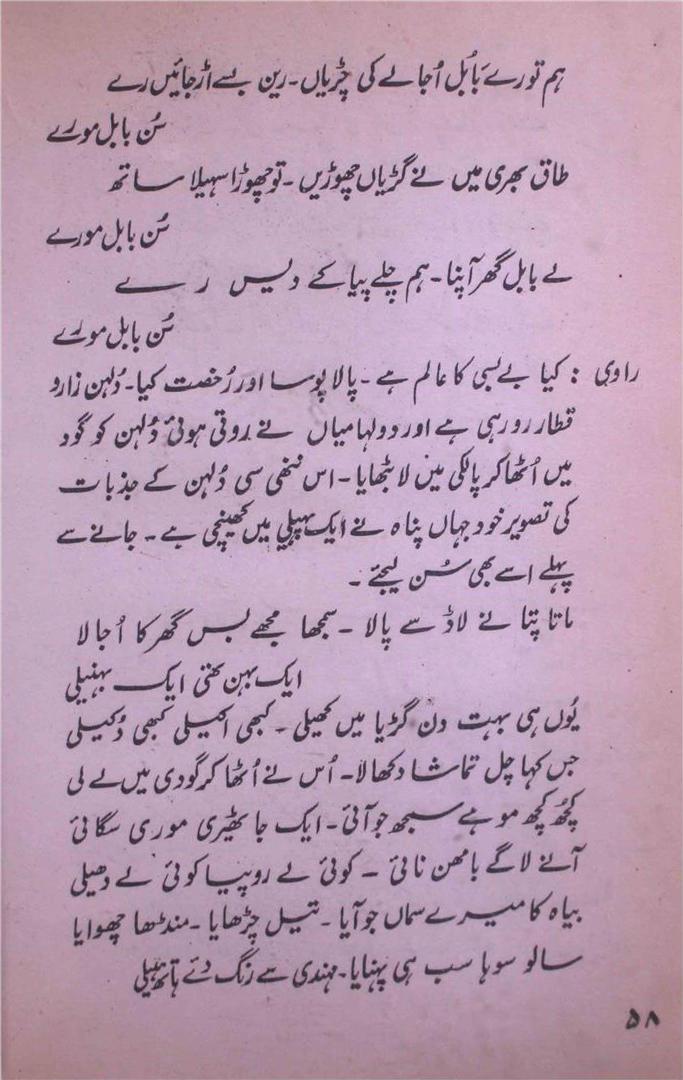 ہم تورے بَابُل اُجالے کی چڑیاں۔رین بسے اڑجائیں رے
سُن بابل مورے
طاق بھری میں نے گڑیاں چھوڑیں۔تو چھوڑا سہیلا ساتھ
سُن بابل مورے
لے بابل گھر آپنا۔ہم چلے پیا کے دیس رے
سُن بابل مورے
راوی : کیا بے بسی کا عالم ہے۔پالا پوسا اور رُخصت کیا۔دُلہن زارو
قطار رو رہی ہے اور دولہا میاں نے روتی ہوئی دُلہن کو گود
میں اُٹھا کر پالکی میں لا بٹھایا۔اس ننھی سی دُلہن کے جذبات
کی تصویر خود جہاں پناہ نے ایک پہیلی میں کھینچی ہے۔ جانے سے
پہلے اسے بھی سُن لیجئے ۔
ماتا پتا نے لاڈ سے پالا ۔سمجھا مجھے بس گھر کا اُجالا
ایک بہن تھی ایک بہنیلی
یُوں ہی بہت دن گڑیا میں کھیلی ۔ کبھی اکیلی کبھی دُکیلی
جس کہا چل تماشا دکھالا۔ اُس نے اُٹھا کر گودی میں لے لی
کچُھ کچُھ موہے سمجھ جو آئی۔ایک جا ٹھیری موری سگائی
آنے لاگے بامھن نائی ۔ کوئی لے روپیا کوئی لے دھیلی
بیاہ کا میرے سماں جو آیا ۔تیل چڑھایا ۔منڈھا چھوایا
سالو سوہا سب ہی پہنایا۔مہندی سے رنگ دئے ہاتھ ہتھیلی
۵۸